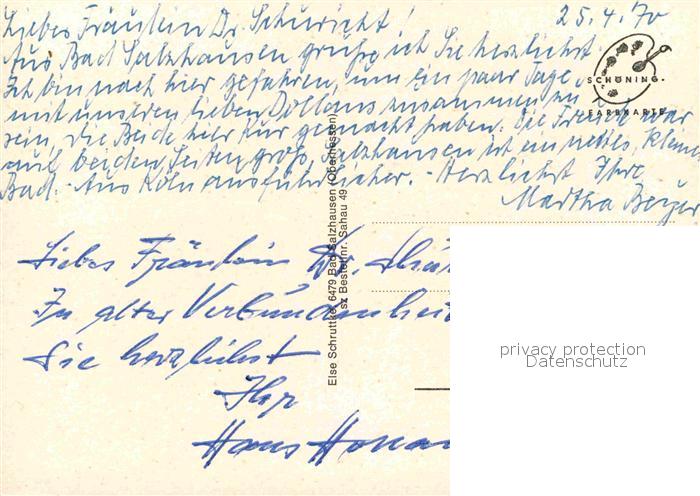 25.4.70
Liebes Fräulein Dr. Schuricht!
Aus Bad Salzhausen grüße ich Sie herzlichst.
Ich bin nach hier gefahren, um ein paar Tage
mit unseren lieben zusammen zu
sein, die Beide hier Kur gemacht haben. Die Freude war
auf beiden Seiten groß. Salzhausen ist ein nettes, kleines
Bad. Aus Köln ausführlicher. - Herzlichst Ihre
Martha Berger
SCHÖNING
FARBKARTE
Liebes Fräulein Dr.
In alter Verbundenheit
Sie herzlichst
Ihr
Hans
Else Schruttke, 6479 Bad Salzhausen (Oberhessen)
sz Bestellnr. Sahau 49
privacy protection
Datenschutz